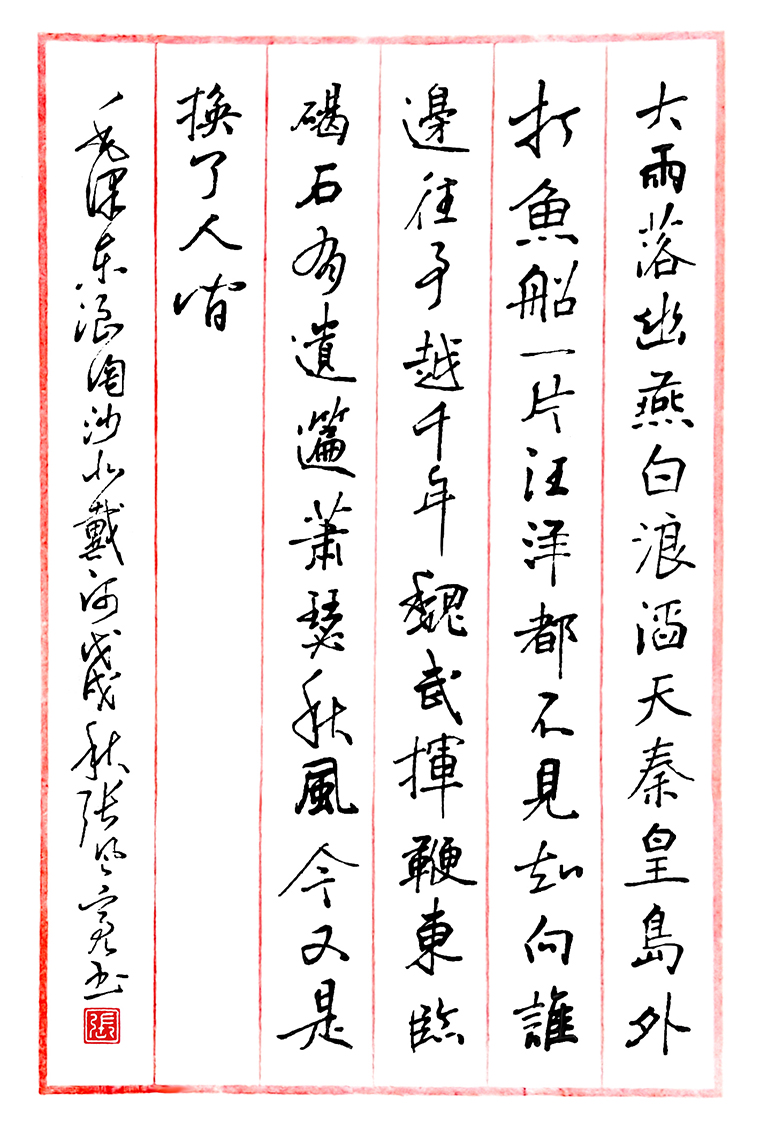 大雨落幽燕白浪滔天秦皇島外
打魚船一片汪洋都不見知向誰
邊往事越千年魏武揮鞭東臨
碣石有遺篇蕭瑟秋風今又是
換了人間
毛澤东浪淘沙北戴河戊戌秋張书
張